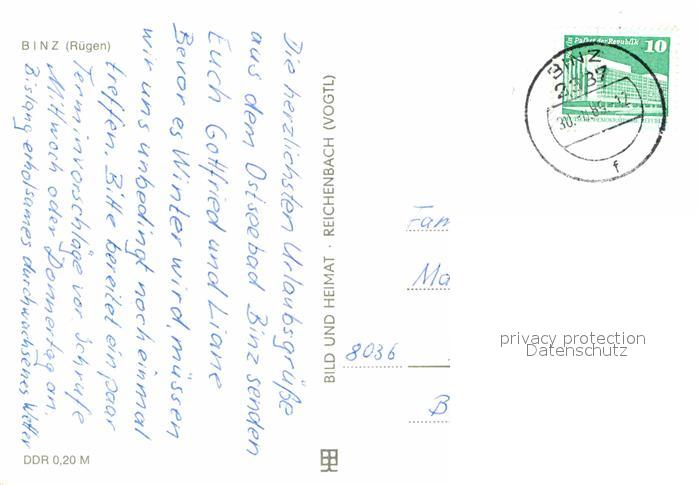 BINZ (Rügen)
Die herzlichsten Urlaubsgrüße
aus dem Ostseebad Binz senden
Euch Gottfried und Liane
Bevor es Winter wird, müssen
wir uns unbedingt noch einmal
treffen. Bitte bereitet ein paar
Terminvorschläge vor. Ich rufe
Mittwoch oder Donnertag an.
Bislang erholsames durchwachsenes Wetter
DDR 0,20 M
BILD UND HEIMAT · REICHENBACH (VOGTL)
Palast der Republik 10
BINZ
2337
f
Fam
Ma
8036
B
privacy protection
Datenschutz